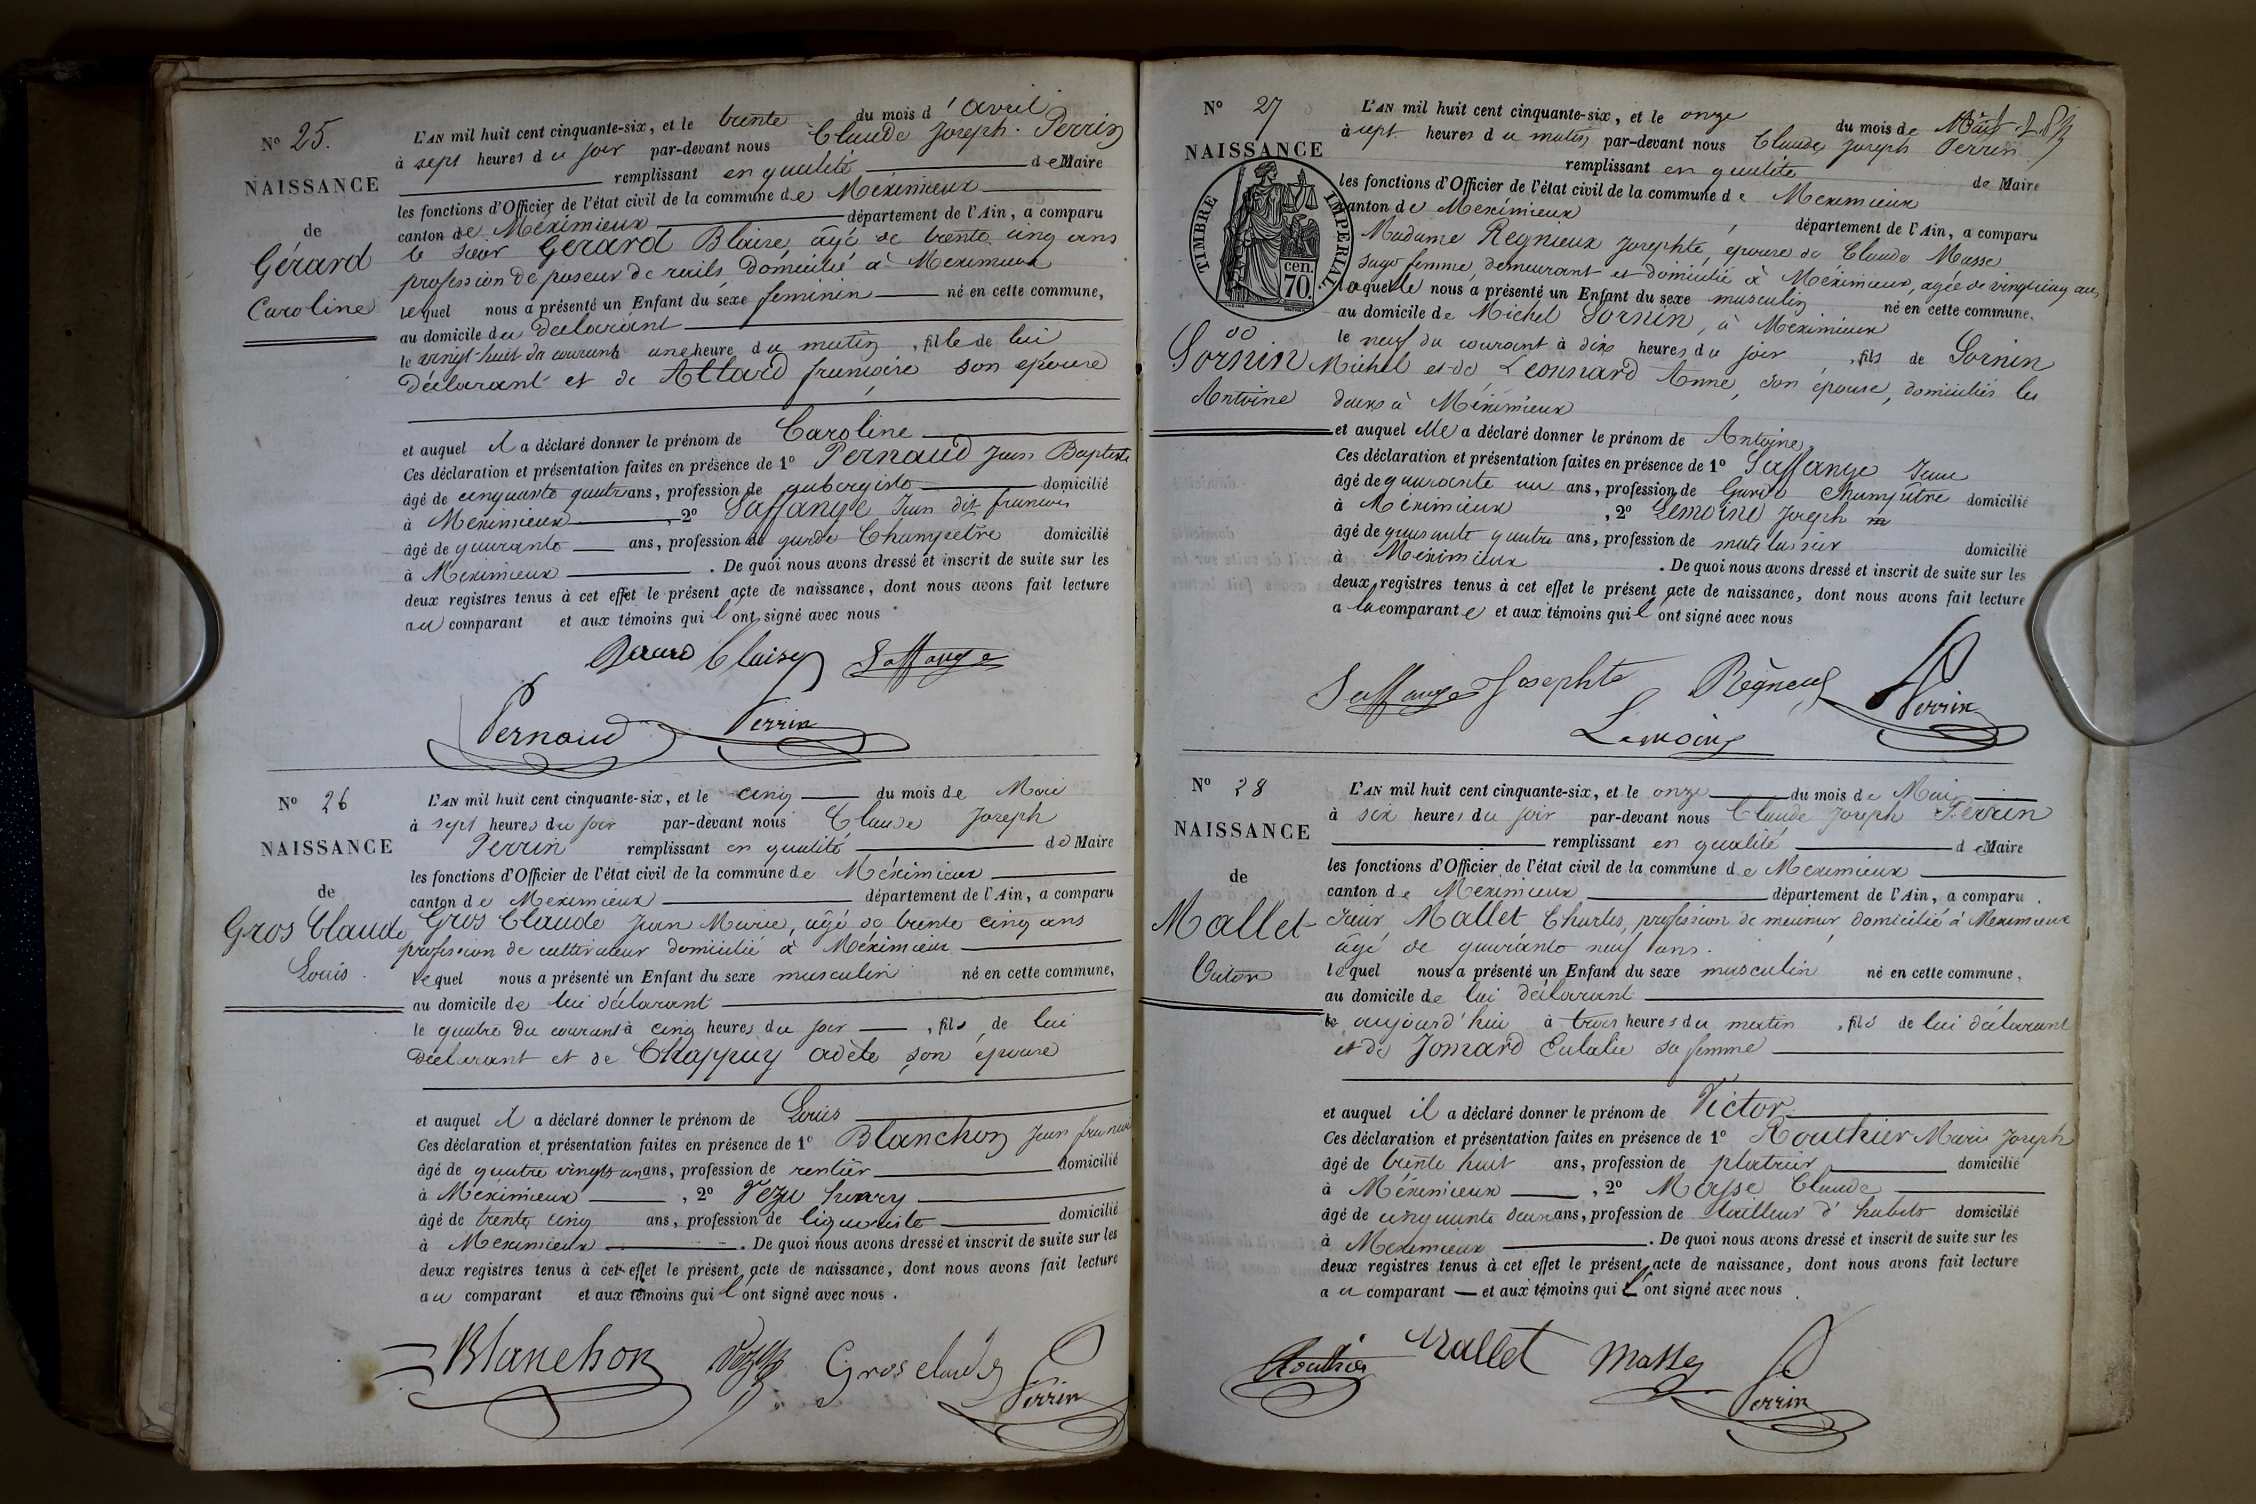 N° 25.
NAISSANCE
de
Gérard
Caroline
L'AN mil huit cent cinquante-six, et le trente du mois d'avril
à sept heures du soir par-devant nous Claude Joseph Perrin
remplissant en qualité de Maire
les fonctions d'Officier de l'état civil de la commune de Méximieux
canton de Méximieux département de l'Ain, a comparu
le sieur Gérard Blaise, âgé de trente cinq ans
profession de poseur de rails domicilié à Meximieux
lequel nous a présenté un Enfant du sexe feminin né en cette commune,
au domicile du déclarant
le vingt-huit du courant à une heure du matin, fille de lui
déclarant et de Allard françoise son epouse
et auquel il a déclaré donner le prénom de Caroline
Ces déclaration et présentation faites en présence de 1° Pernaud Jean Baptiste
âgé de cinquante quatre ans, profession de aubergiste domicilié
à Meximieux, 2° Saffange Jean dit francois
âgé de quarante ans, profession de garde Champêtre domicilié
à Meximieux. De quoi nous avons dressé et inscrit de suite sur les
deux registres tenus à cet effet le présent acte de naissance, dont nous avons fait lecture
au comparant et aux témoins qui l'ont signé avec nous
Blaise Saffange
Pernaud Perrin
N° 26
NAISSANCE
de
Gros Claude
Louis
L'AN mil huit cent cinquante-six, et le cinq du mois de Mai
à sept heures du soir par-devant nous Claude Joseph
Perrin remplissant en qualité de Maire
les fonctions d'Officier de l'état civil de la commune de Méximieux
canton de Meximieux département de l'Ain, a comparu
Gros Claude Jean Marie, âgé de trente cinq ans
profession de cultivateur domicilié à Méximieux
lequel nous a présenté un Enfant du sexe masculin né en cette commune,
au domicile de lui déclarant
le quatre du courant à cinq heures du soir, fils de lui
déclarant et de Chappuy adèle, son épouse
et auquel il a déclaré donner le prénom de Louis
Ces déclaration et présentation faites en présence de 1° Blanchon Jean francois
âgé de quatre vingts un ans, profession de rentier domicilié
à Méximieux, 2° Vezu henry
âgé de trente cinq ans, profession de liquoriste domicilié
à Meximieux. De quoi nous avons dressé et inscrit de suite sur les
deux registres tenus à cet effet le présent acte de naissance, dont nous avons fait lecture
au comparant et aux témoins qui l'ont signé avec nous.
Blanchon Vezu Gros claude
Perrin
N° 27
NAISSANCE
TIMBRE IMPERIAL
70 cen.
Sornin
Antoine
L'AN mil huit cent cinquante-six, et le onze du mois de Mai
à sept heures du matin, par-devant nous Claude Joseph Perrin
remplissant en qualité de Maire
les fonctions d'Officier de l'état civil de la commune de Meximieux
canton de Meximieux département de l'Ain, a comparu
Madame Regnieux Josephte, épouse de Claude Masse
sage femme, demeurant et domicilié à Méximieux, agée de vingt cinq ans
laquelle nous a présenté un Enfant du sexe masculin né en cette commune,
au domicile de Michel Sornin, à Meximieux
le neuf du courant à dix heures du soir, fils de Sornin
Michel et de Léonnard Anne, son épouse, domiciliés les
deux à Méximieux
et auquel elle a déclaré donner le prénom de Antoine
Ces déclaration et présentation faites en présence de 1° Saffange Jean
âgé de quarante un ans, profession de Garde Champêtre domicilié
à Méximieux, 2° Lemoine Joseph
âgé de quarante quatre ans, profession de matelassier domicilié
à Méximieux. De quoi nous avons dressé et inscrit de suite sur les
deux registres tenus à cet effet le présent acte de naissance, dont nous avons fait lecture
a la comparante et aux témoins qui l'ont signé avec nous
Saffange Josephte Régneux Perrin
Lemoine
N° 28
NAISSANCE
de
Mallet
Victor
L'AN mil huit cent cinquante-six, et le onze du mois de Mai
à six heures du soir par-devant nous Claude Joseph Perrin
remplissant en qualité de Maire
les fonctions d'Officier de l'état civil de la commune de Meximieux
canton de Meximieux département de l'Ain, a comparu
sieur Mallet Charles, profession de meunier domicilié à Meximieux
âgé de quarante neuf ans.
lequel nous a présenté un Enfant du sexe masculin né en cette commune,
au domicile de lui déclarant
le aujourd'hui à trois heures du matin, fils de lui déclarant
et de Jomard Eulalie sa femme
et auquel il a déclaré donner le prénom de Victor
Ces déclaration et présentation faites en présence de 1° Routhier Marie Joseph
âgé de trente huit ans, profession de platrier domicilié
à Méximieux, 2° Masse Claude
âgé de cinquante deux ans, profession de tailleur d'habits domicilié
à Meximieux. De quoi nous avons dressé et inscrit de suite sur les
deux registres tenus à cet effet le présent acte de naissance, dont nous avons fait lecture
au comparant et aux témoins qui l'ont signé avec nous.
Routhier Mallet Masse
Perrin